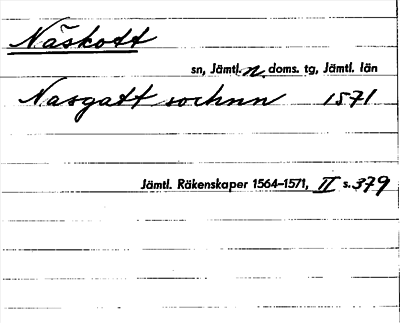 Näskott
sn, Jämtl. n. doms. tg, Jämtl. län
Nasgatt sochnn 1571
Jämtl. Räkenskaper 1564–1571, II s. 379